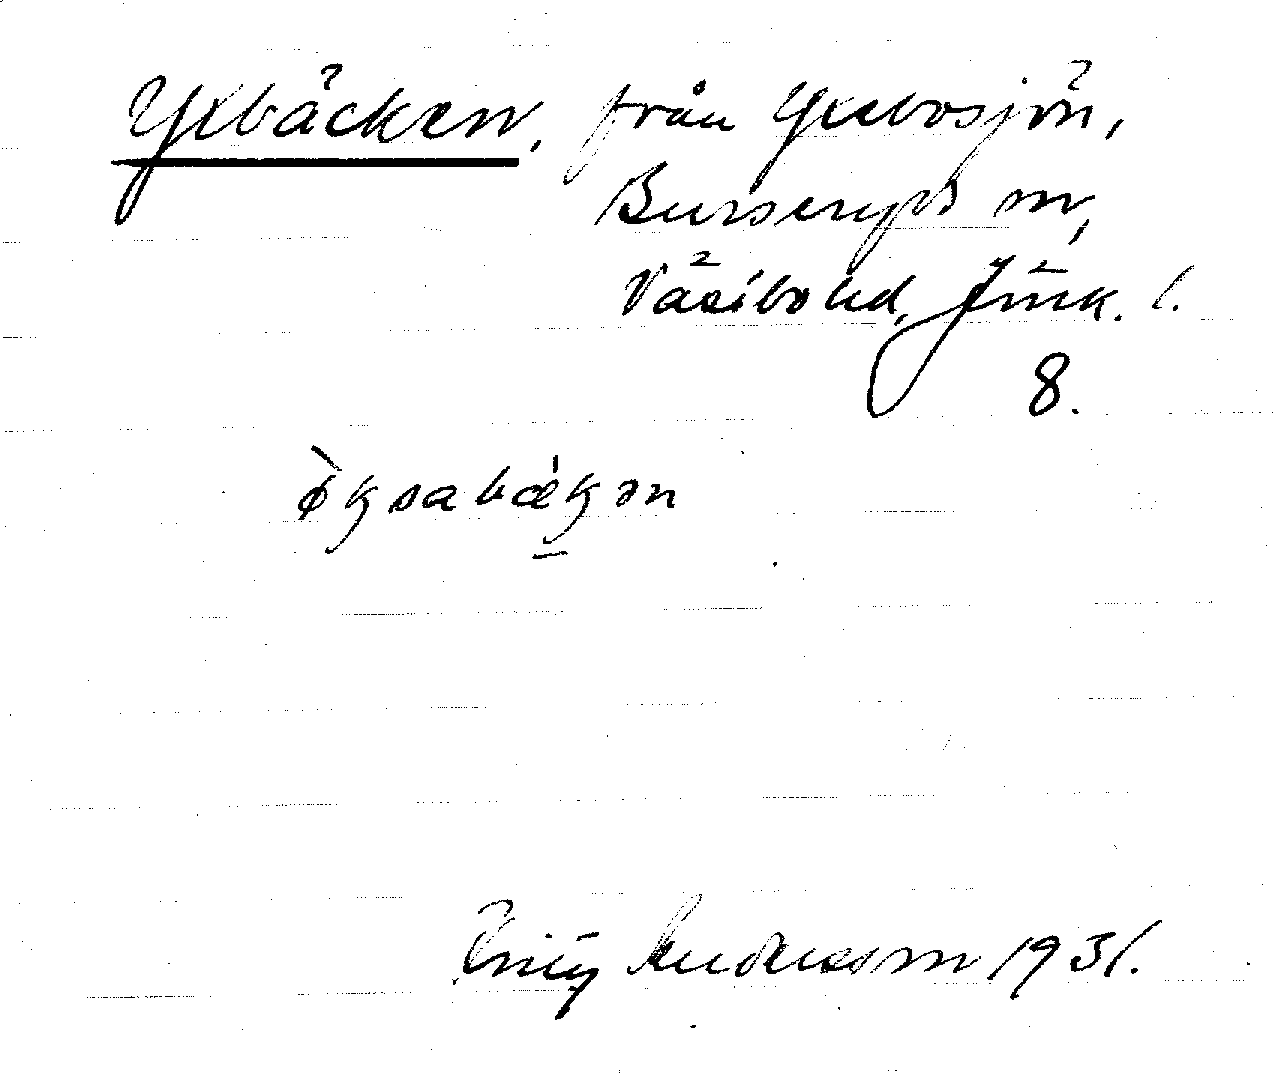 Yxbäcken, från Yxebosjön,
Burseryds sn,
Västbo hd, Jönk. l.
8.
ø̀ksabækən
Andersson 1931.